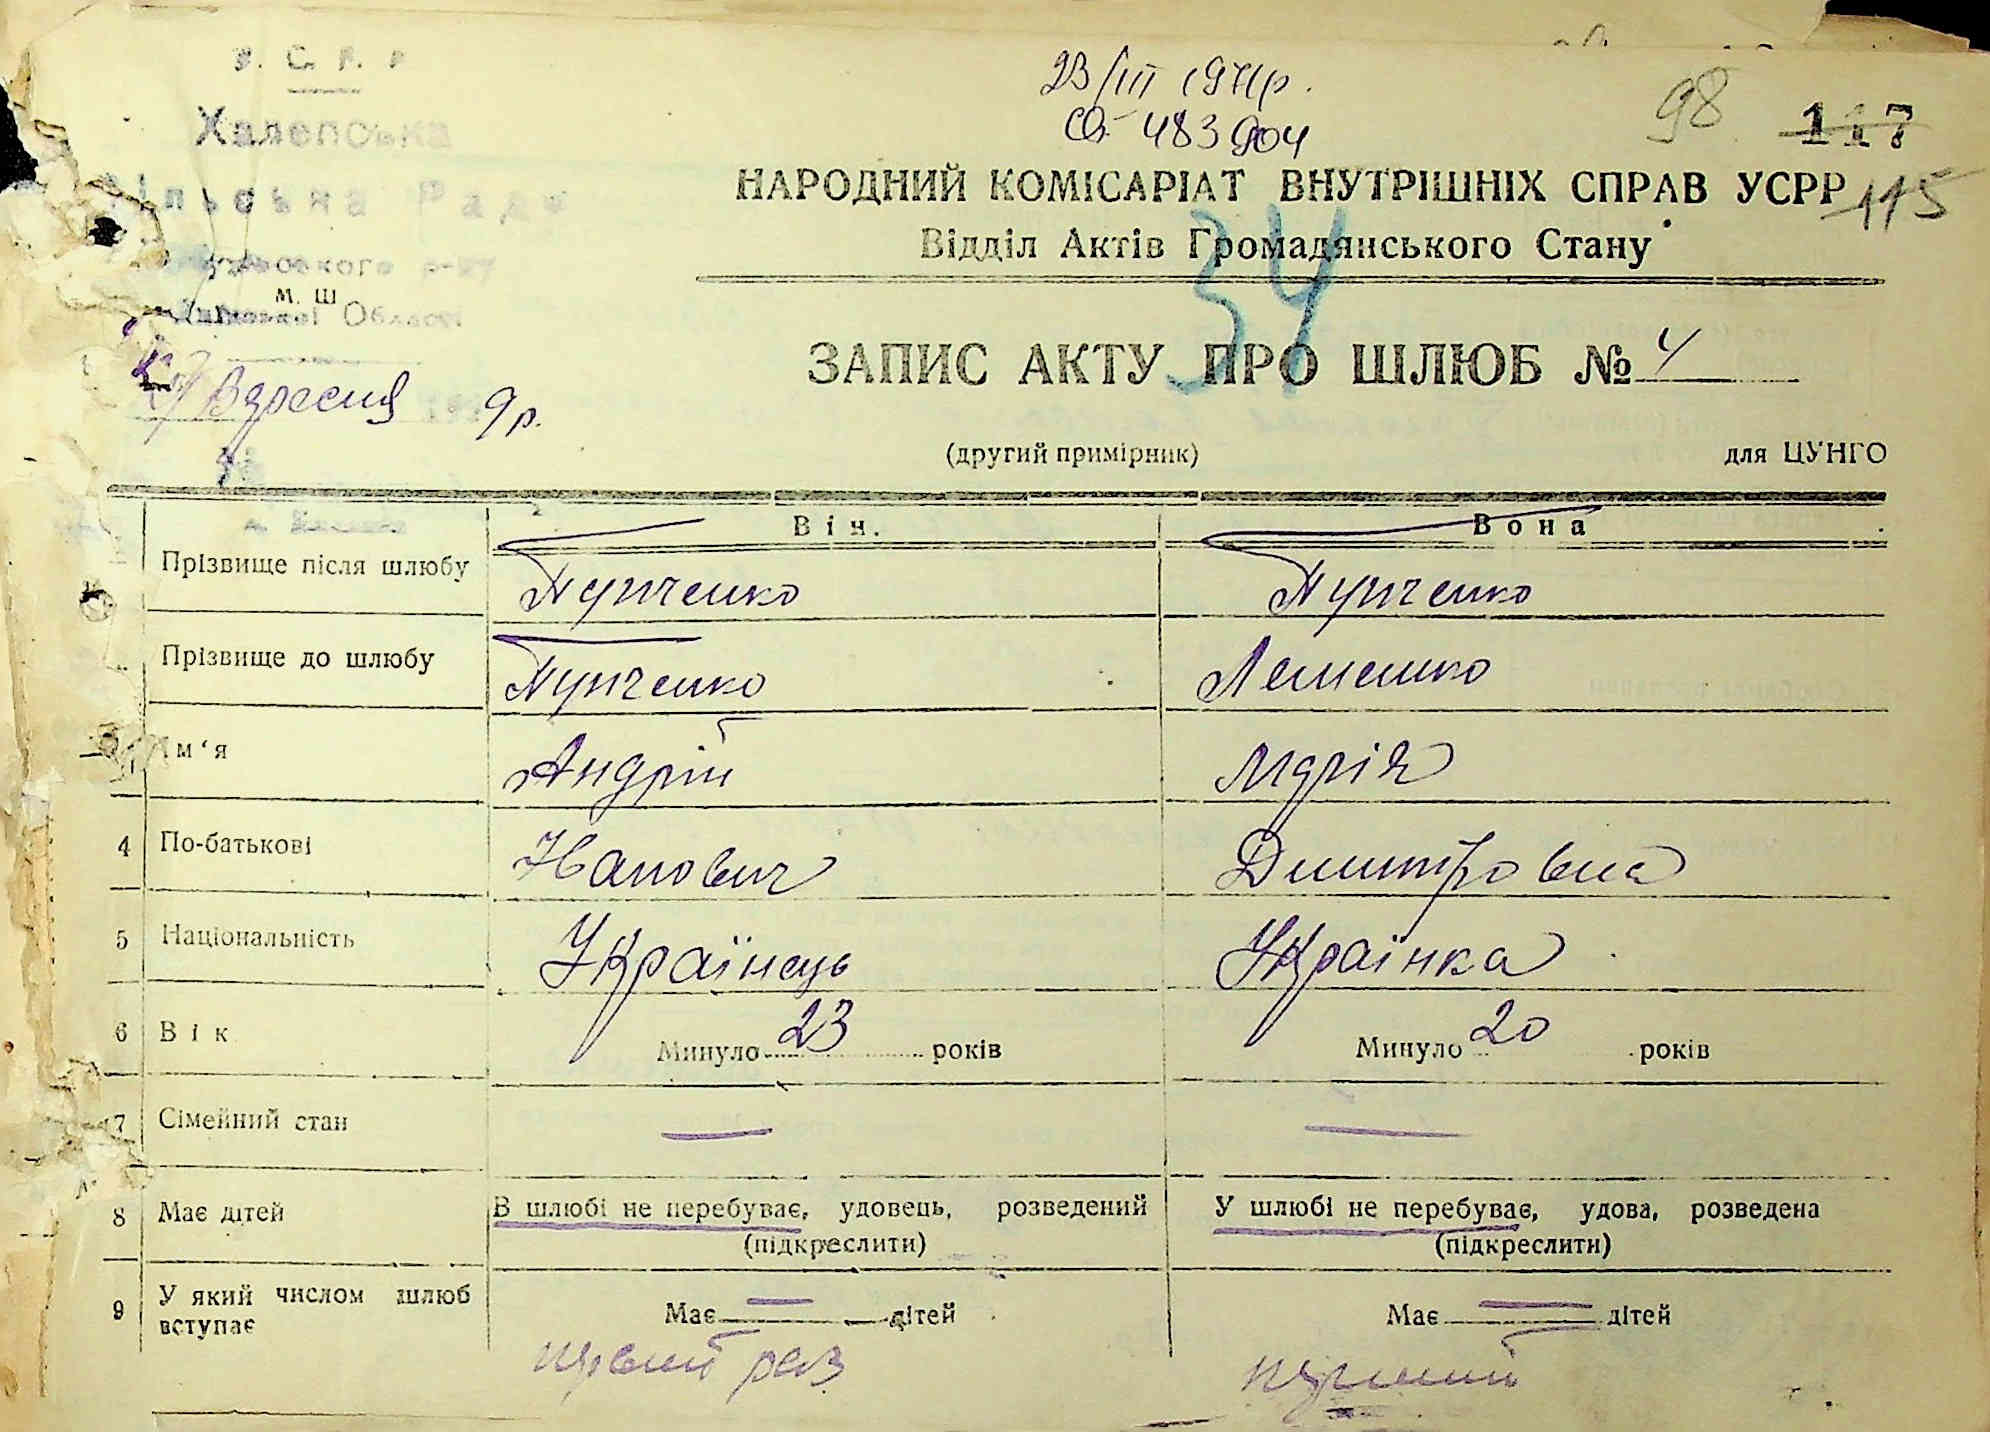 Халепська
Сільська Рада
Області
М. Ш
Вересня 9р.
23/III 1971р.
483904
98 117
115
НАРОДНИЙ КОМІСАРІАТ ВНУТРІШНІХ СПРАВ УСРР
Відділ Актів Громадянського Стану
34
ЗАПИС АКТУ ПРО ШЛЮБ № 4
(другий примірник) для ЦУНГО
Він. Вона
Прізвище після шлюбу Пупченко Пупченко
Прізвище до шлюбу Пупченко Лемешко
Ім'я Андрій Марія
4 По-батькові Іванович Димитровна
5 Національність Українець Українка
6 Вік Минуло 23 років Минуло 20 років
7 Сімейний стан — —
8 Має дітей В шлюбі не перебуває, удовець, розведений У шлюбі не перебуває, удова, розведена
(підкреслити) (підкреслити)
9 У який числом шлюб вступає Має — дітей Має — дітей
первий раз перший